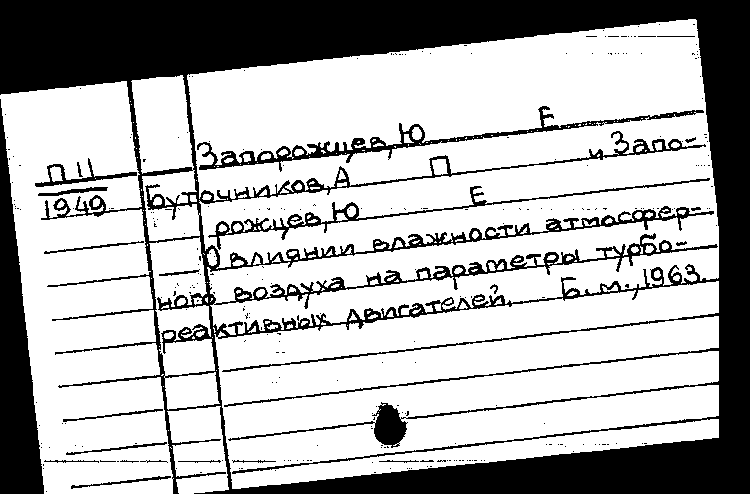 Запорожцев, Ю Е
П 11
1949
Буточников, А П и Запо-
рожцев, Ю Е
О влиянии влажности атмосфер-
ного воздуха на параметры турбо-
реактивных двигателей. Б.м., 1963.